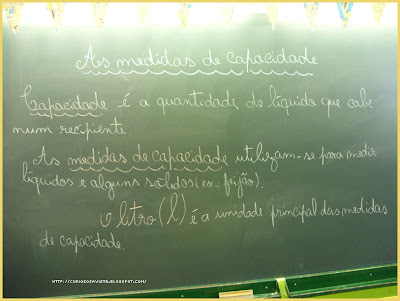 As medidas de capacidade
Capacidade é a quantidade de líquido que cabe
num recipiente.
As medidas de capacidade utilizam-se para medir
líquidos e alguns sólidos (ex.: feijão).
O litro (l) é a unidade principal das medidas
de capacidade.
HTTP://CURIOSOSAVISTA.BLOGSPOT.COM/